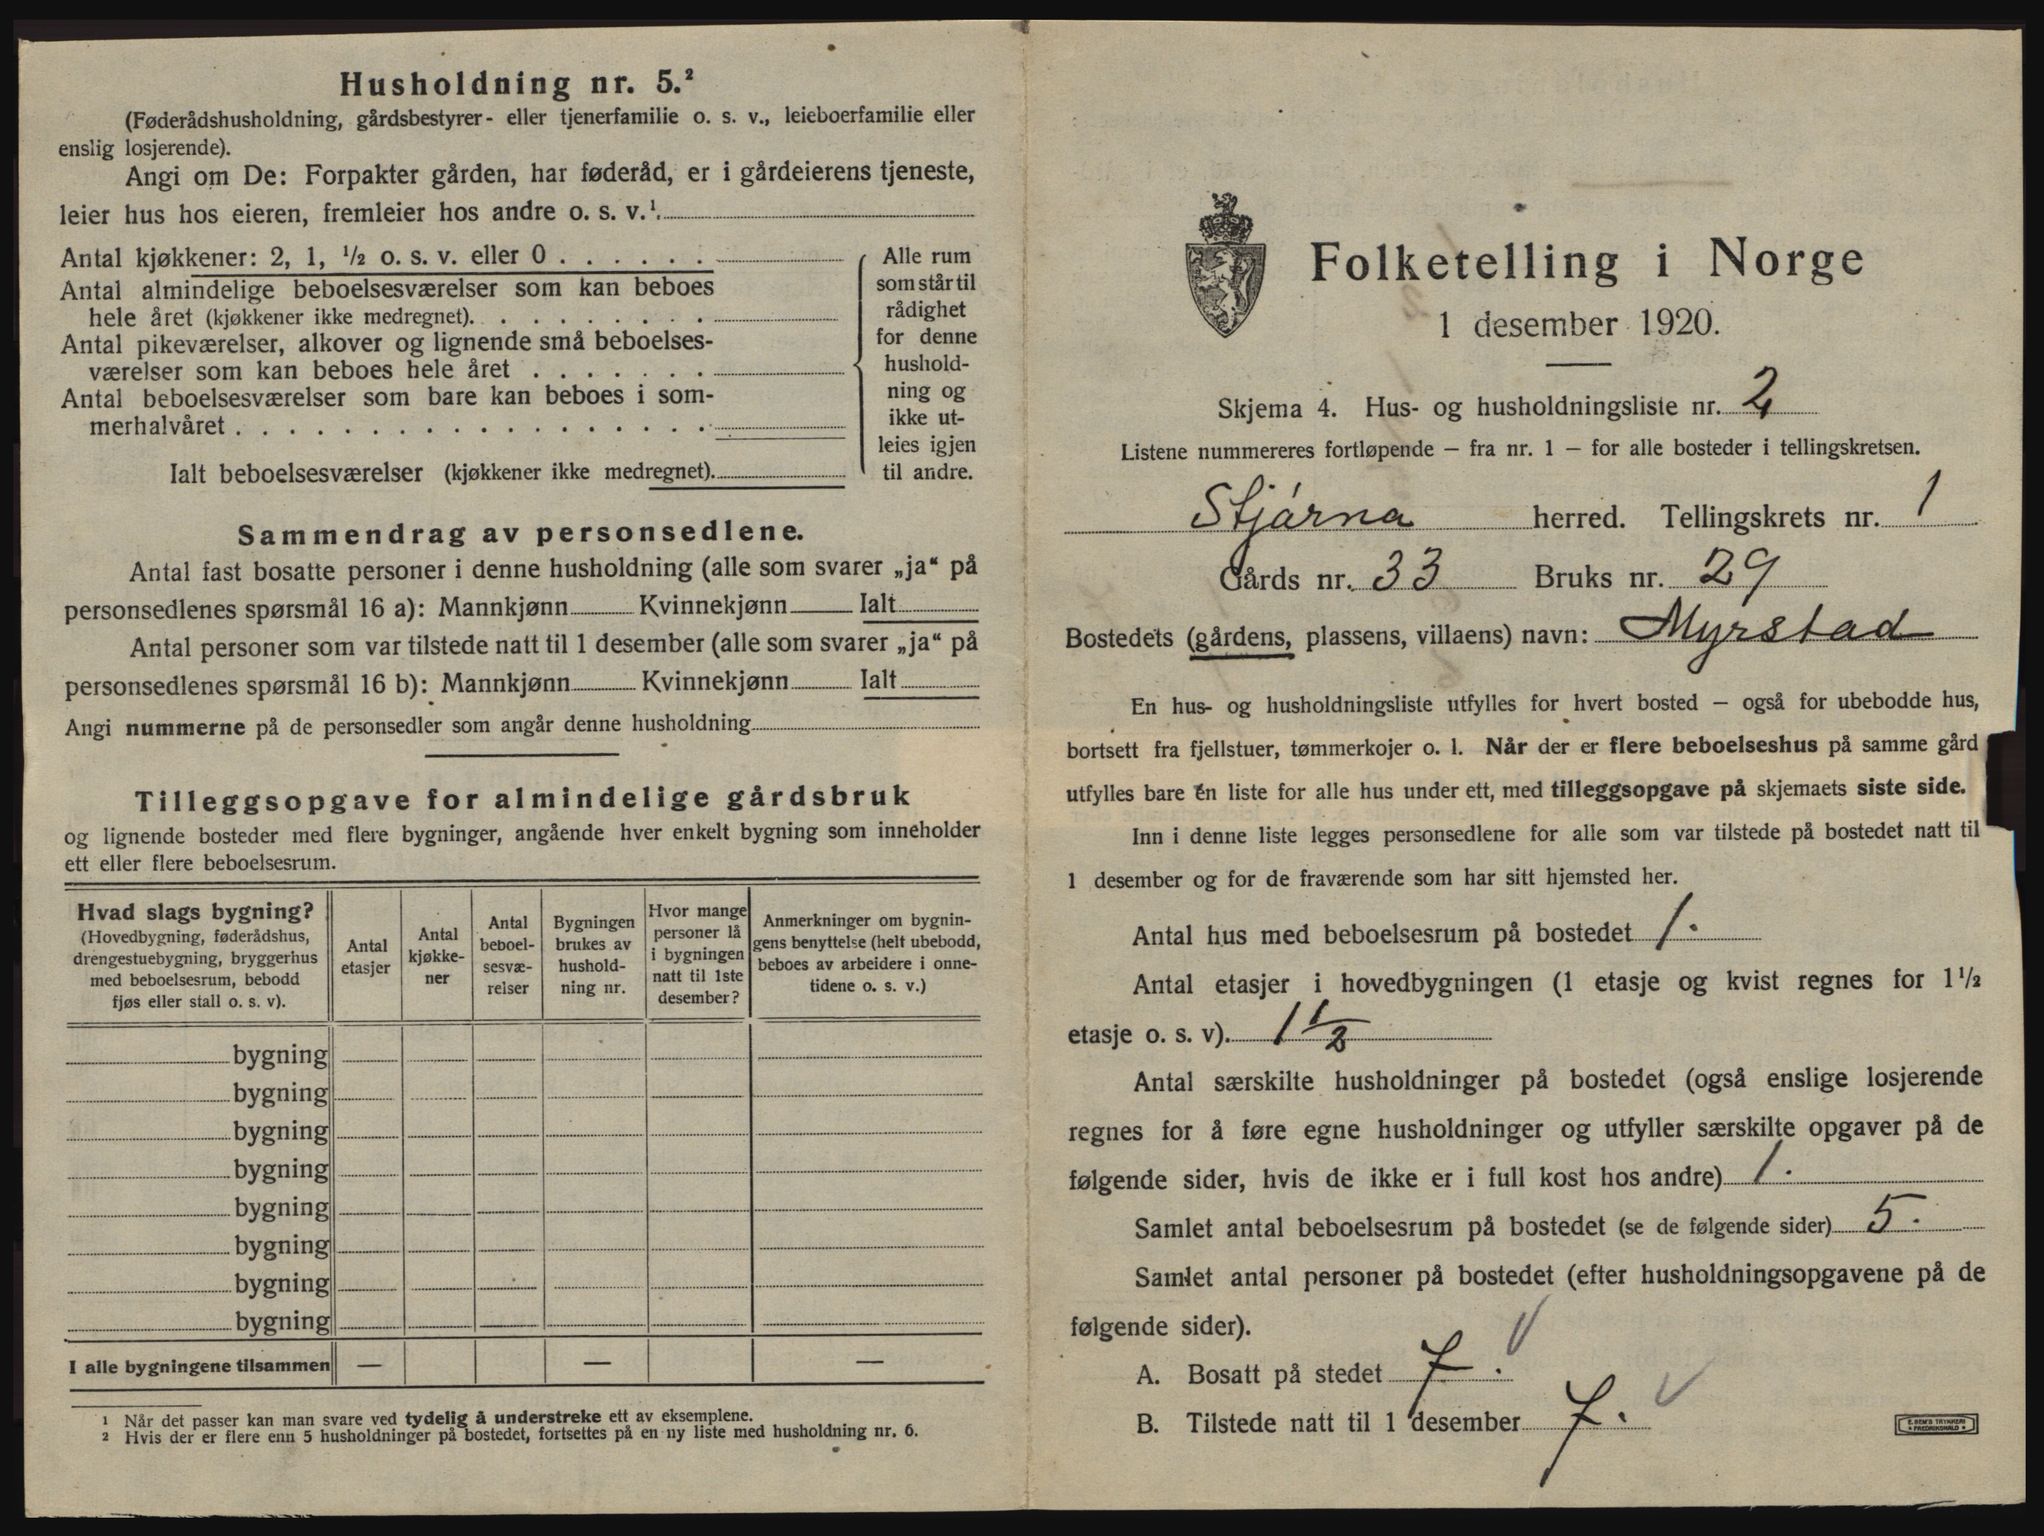 Husholdning nr. 5.²
(Føderådshusholdning, gårdsbestyrer- eller tjenerfamilie o. s. v., leieboerfamilie eller
enslig losjerende).
Angi om De: Forpakter gården, har føderåd, er i gårdeierens tjeneste,
leier hus hos eieren, fremleier hos andre o. s. v.¹.
Antal kjøkkener: 2, 1, ½ o. s. v. eller 0 . . . . . .
Antal almindelige beboelsesværelser som kan beboes
hele året (kjøkkener ikke medregnet). . . . . . . . .
Antal pikeværelser, alkover og lignende små beboelses-
værelser som kan beboes hele året . . . . . . .
Antal beboelsesværelser som bare kan beboes i som-
merhalvåret . . . . . . . . . . . . . . . . . .
Ialt beboelsesværelser (kjøkkener ikke medregnet).
Alle rum
som står til
rådighet
for denne
hushold-
ning og
ikke ut-
leies igjen
til andre.
Sammendrag av personsedlene.
Antal fast bosatte personer i denne husholdning (alle som svarer „ja“ på
personsedlenes spørsmål 16 a): Mannkjønn Kvinnekjønn Ialt
Antal personer som var tilstede natt til 1 desember (alle som svarer „ja“ på
personsedlenes spørsmål 16 b): Mannkjønn Kvinnekjønn Ialt
Angi nummerne på de personsedler som angår denne husholdning
Tilleggsopgave for almindelige gårdsbruk
og lignende bosteder med flere bygninger, angående hver enkelt bygning som inneholder
ett eller flere beboelsesrum.
Hvad slags bygning?
(Hovedbygning, føderådshus,
drengestuebygning, bryggerhus
med beboelsesrum, bebodd
fjøs eller stall o. s. v).
Antal
etasjer
Antal
kjøkke-
ner
Antal
beboel-
sesvæ-
relser
Bygningen
brukes av
hushold-
ning nr.
Hvor mange
personer lå
i bygningen
natt til 1ste
desember?
Anmerkninger om bygnin-
gens benyttelse (helt ubebodd,
beboes av arbeidere i onne-
tidene o. s. v.)
bygning
bygning
bygning
bygning
bygning
bygning
bygning
bygning
I alle bygningene tilsammen — — —
¹ Når det passer kan man svare ved tydelig å understreke ett av eksemplene.
² Hvis der er flere enn 5 husholdninger på bostedet, fortsettes på en ny liste med husholdning nr. 6.
Folketelling i Norge
1 desember 1920.
Skjema 4. Hus- og husholdningsliste nr. 2
Listene nummereres fortløpende – fra nr. 1 – for alle bosteder i tellingskretsen.
Stjørna herred. Tellingskrets nr. 1
Gårds nr. 33 Bruks nr. 29
Bostedets (gårdens, plassens, villaens) navn: Myrstad
En hus- og husholdningsliste utfylles for hvert bosted – også for ubebodde hus,
bortsett fra fjellstuer, tømmerkojer o. l. Når der er flere beboelseshus på samme gård
utfylles bare én liste for alle hus under ett, med tilleggsopgave på skjemaets siste side.
Inn i denne liste legges personsedlene for alle som var tilstede på bostedet natt til
1 desember og for de fraværende som har sitt hjemsted her.
Antal hus med beboelsesrum på bostedet 1.
Antal etasjer i hovedbygningen (1 etasje og kvist regnes for 1½
etasje o. s. v). 1½
Antal særskilte husholdninger på bostedet (også enslige losjerende
regnes for å føre egne husholdninger og utfyller særskilte opgaver på de
følgende sider, hvis de ikke er i full kost hos andre) 1.
Samlet antal beboelsesrum på bostedet (se de følgende sider) 5.
Samlet antal personer på bostedet (efter husholdningsopgavene på de
følgende sider).
A. Bosatt på stedet 7.
B. Tilstede natt til 1 desember 7.